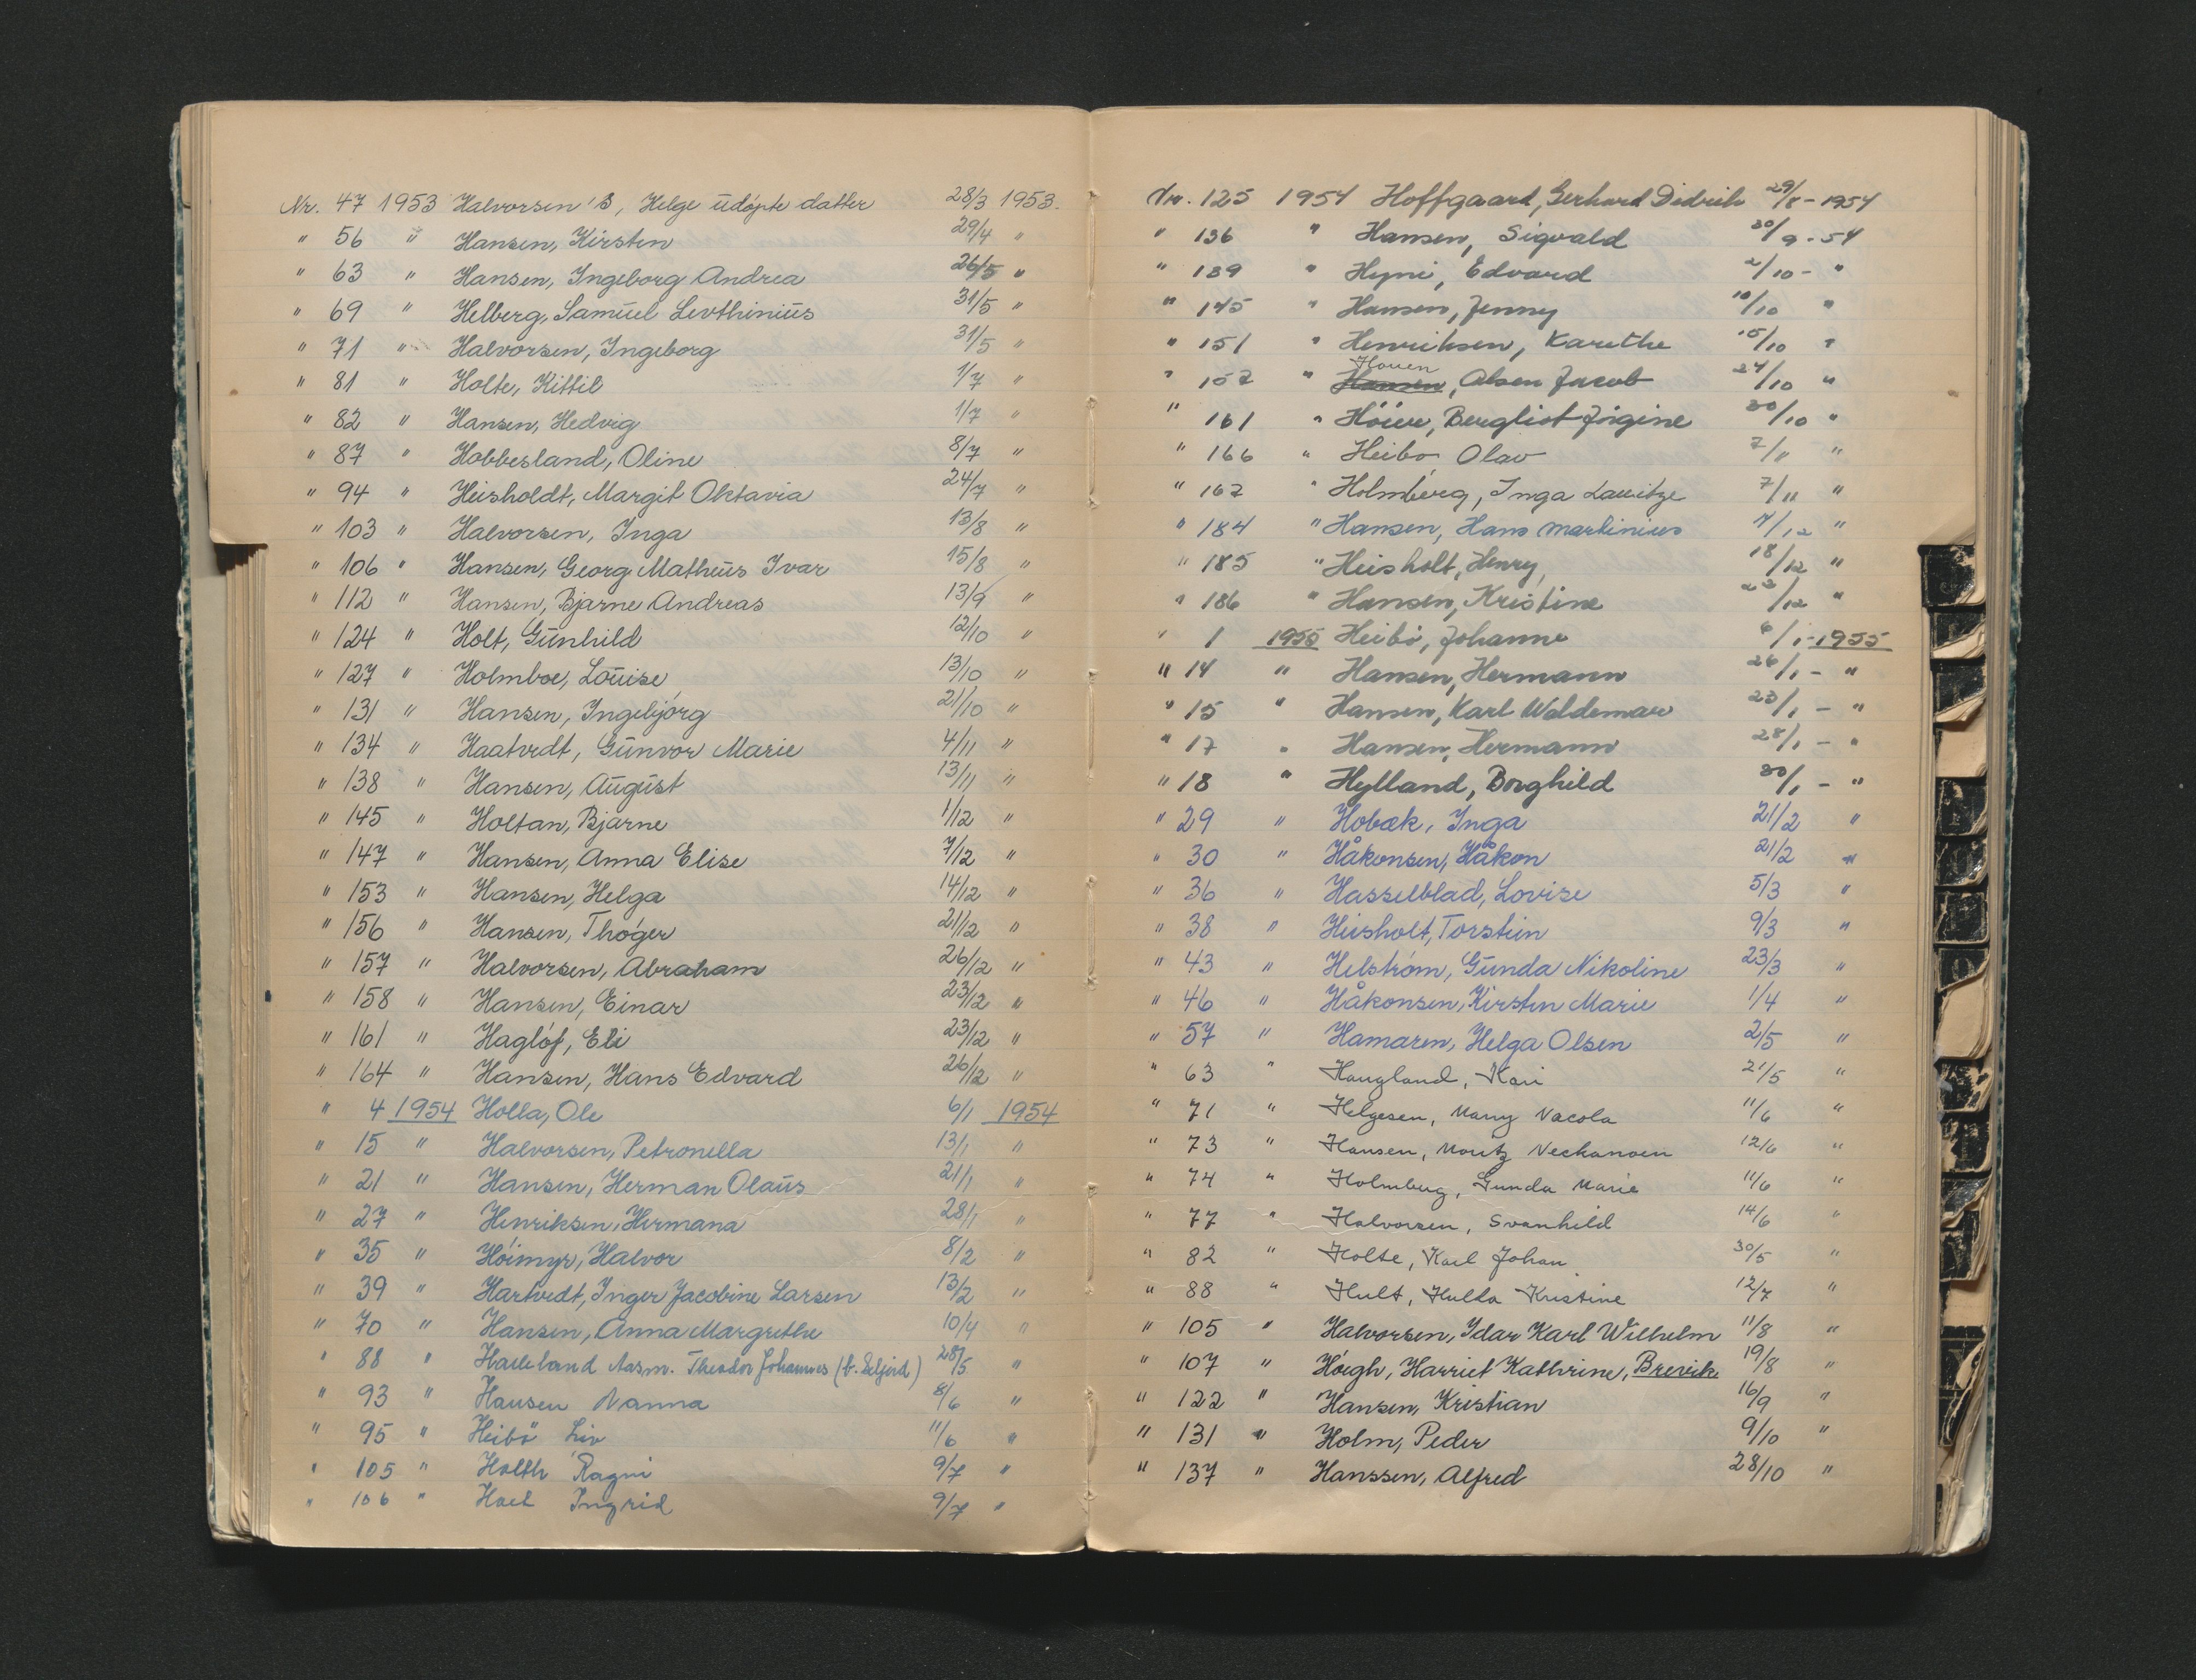 Nr. 47 1953 Halvorsen's, Helge udøpte datter 28/3 1953.
" 56 " Hansen, Kirsten 29/4 "
" 63 " Hansen, Ingeborg Andrea 26/5 "
" 69 " Helberg, Samuel Levthinius 31/5 "
" 71 " Halvorsen, Ingeborg 31/5 "
" 81 " Holte, Kittil 1/7 "
" 82 " Hansen, Hedvig 1/7 "
" 87 " Hobbesland, Oline 8/7 "
" 94 " Heisholdt, Margit Oktavia 24/7 "
" 103 " Halvorsen, Inga 13/8 "
" 106 " Hansen, Georg Matheus Ivar 15/8 "
" 112 " Hansen, Bjarne Andreas 13/9 "
" 124 " Holt, Gunhild 12/10 "
" 127 " Holmboe, Louise 13/10 "
" 131 " Hansen, Ingebjørg 21/10 "
" 134 " Haatvedt, Gunvor Marie 4/11 "
" 138 " Hansen, August 13/11 "
" 145 " Holtan, Bjarne 1/12 "
" 147 " Hansen, Anna Elise 7/12 "
" 153 " Hansen, Helga 14/12 "
" 156 " Hansen, Thøger 21/12 "
" 157 " Halvorsen, Abraham 26/12 "
" 158 " Hansen, Einar 23/12 "
" 161 " Hagløf, Eli 23/12 "
" 164 " Hansen, Hans Edvard 26/12 "
" 4 1954 Holla, Ole 6/1 1954
" 15 " Halvorsen, Petronella 13/1 "
" 21 " Hansen, Herman Olaus 21/1 "
" 27 " Henriksen, Hermana 28/1 "
" 35 " Høimyr, Halvor 8/2 "
" 39 " Hartvedt, Inger Jacobine Larsen 13/2 "
" 70 " Hansen, Anna Margrethe 10/4 "
" 88 " Aasm. Theodor Johannes (b. Seljord) 28/5 "
" 93 " Hansen Nanna 8/6 "
" 95 " Heibö Liv 11/6 "
" 105 " Holth Ragni 9/7 "
" 106 " Hoel Ingrid 9/7 "
Nr. 125 1954 Hoffgaard, Gerhard Didrich 29/8 - 1954
" 136 " Hansen, Sigvald 30/9 - 54
" 139 " Hyni, Edvard 2/10 - "
" 145 " Hansen, Jenny 10/10 "
" 151 " Henriksen, Karethe 15/10 "
Hoven
" 152 " Hansen, Alsen Jacob 24/10 "
" 161 " Höier, Bergliot Jörgine 30/10 "
" 166 " Heibo Olav 7/11 "
" 167 " Holmberg, Inga Lauitze 7/11 "
" 184 " Hansen, Hans Martinius /12 "
" 185 " Heisholt, Henry, 18/12 "
" 186 " Hansen, Kristine 22/12 "
" 1 1955 Heibö, Johanne 6/1 - 1955
" 14 " Hansen, Hermann 26/1 - "
" 15 " Hansen, Karl Waldemar 23/1 - "
" 17 " Hansen, Hermann 28/1 - "
" 18 " Hylland, Borghild 30/1 - "
" 29 " Hobæk, Inga 21/2 "
" 30 " Håkonsen, Håkon 21/2 "
" 36 " Hasselblad, Lovise 5/3 "
" 38 " Heisholt, Torstein 9/3 "
" 43 " Helstrøm, Gunda Nikoline 23/3 "
" 46 " Håkonsen, Kirsten Marie 1/4 "
" 57 " Hamaren, Helga Olsen 2/5 "
" 63 " Haugland, Kari 21/5 "
" 71 " Helgesen, Marry Nacola 11/6 "
" 73 " Hansen, Moritz 12/6 "
" 74 " Holmberg, Gunda Marie 11/6 "
" 77 " Halvorsen, Svanhild 14/6 "
" 82 " Holte, Karl Johan 30/5 "
" 88 " Hult, Hulda Kristine 12/7 "
" 105 " Halvorsen, Idar Karl Wilhelm 11/8 "
" 107 " Høegh, Harriet Kathrine, Brevik. 19/8 "
" 122 " Hansen, Kristian 16/9 "
" 131 " Holm, Peder 9/10 "
" 137 " Hanssen, Alfred 28/10 "